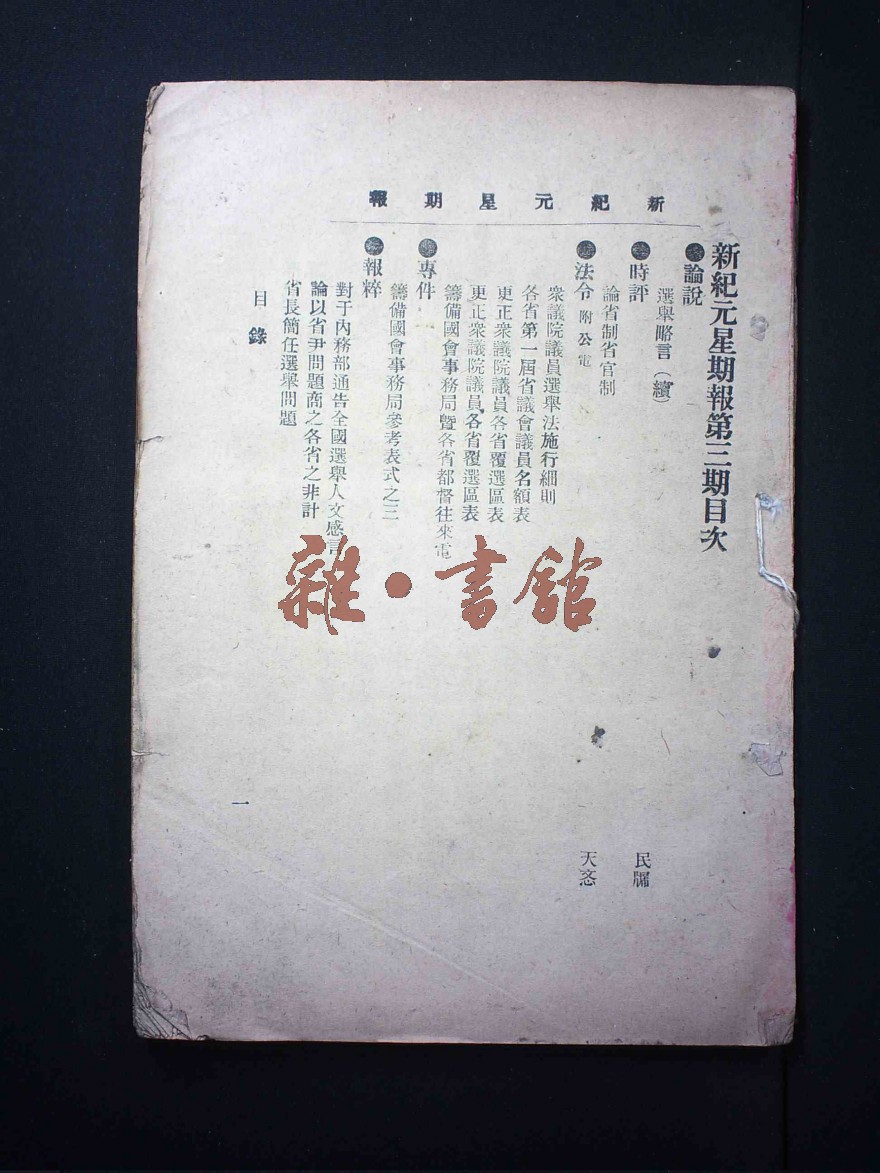 新紀元星期報
新紀元星期報第三期目次
●論說
選舉略言（續）
民牖
●時評
論省制省官制
天忞
●法令 附公電
衆議院議員選舉法施行細則
各省第一屆省議會議員名額表
更正衆議院議員各省覆選區表
更正衆議院議員各省覆選區表
籌備國會事務局暨各省都督往來電
●專件
籌備國會事務局參考表式之三
●報粹
對于內務部通告全國選舉人文感言
論以省尹問題商之各省之非計
省長簡任選舉問題
目錄
一
雜·書館